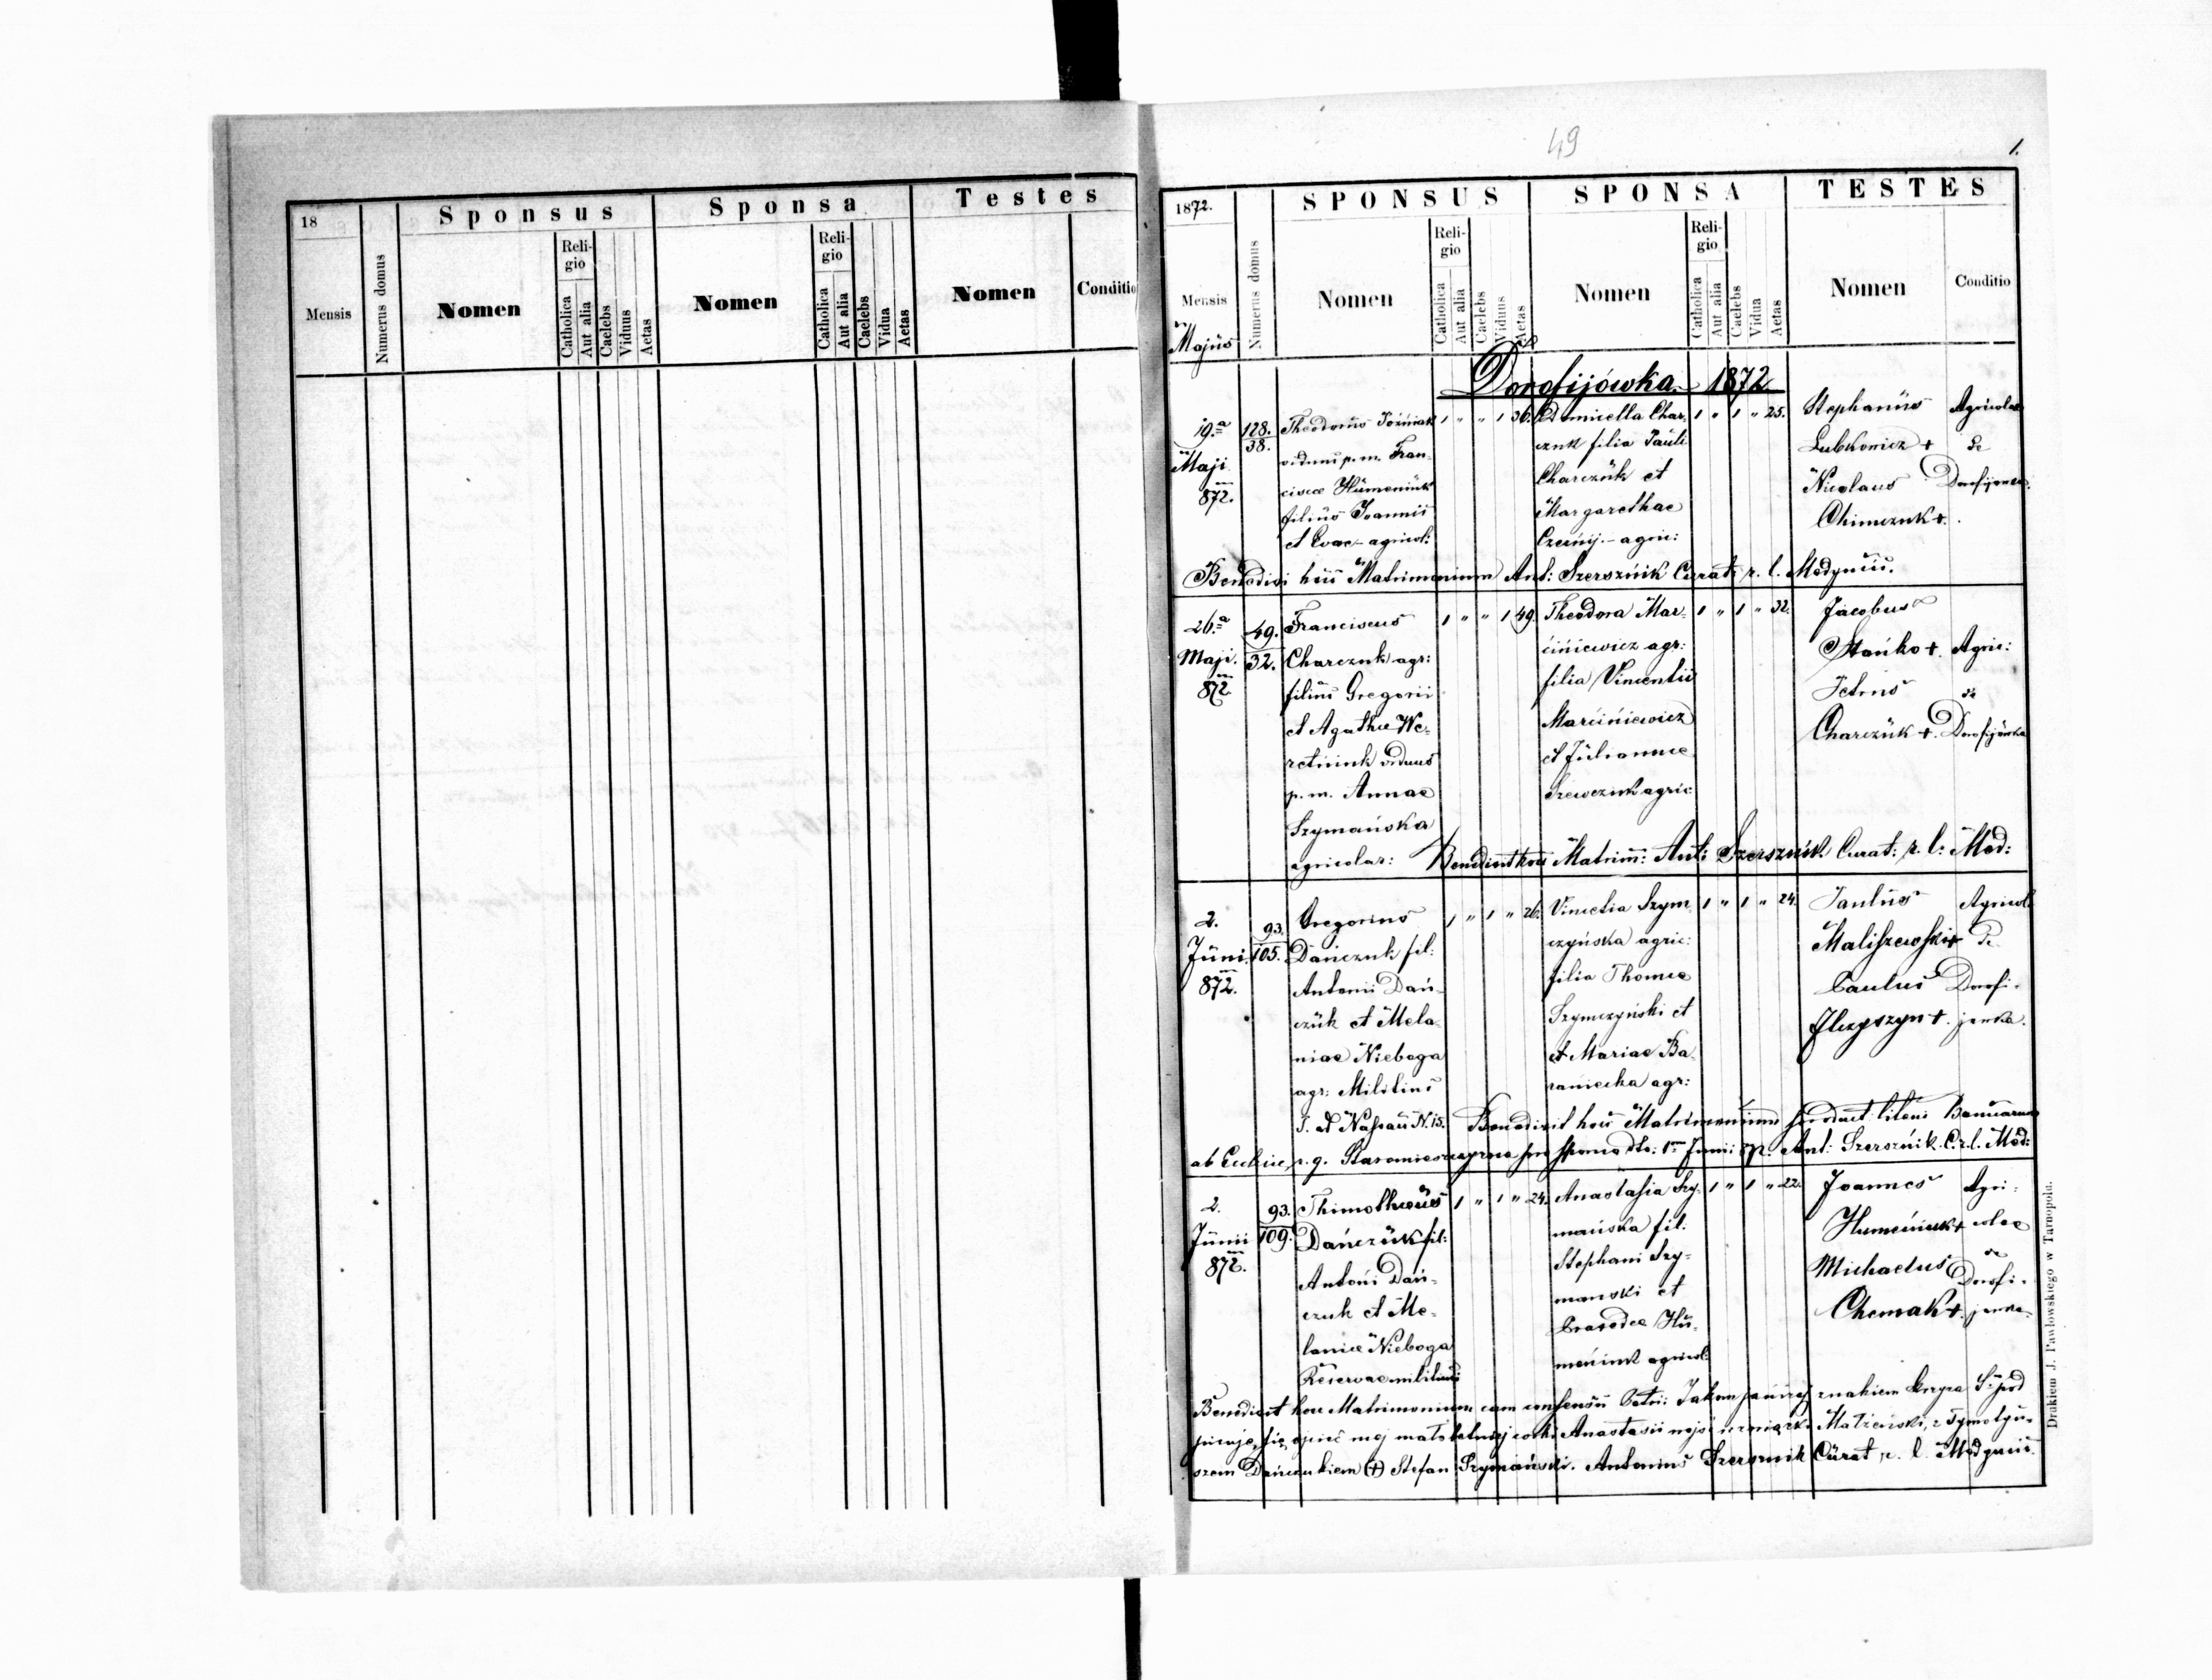 18
Mensis
Numerus domus
Sponsus
Nomen
Reli-
gio
Catholica
Aut alia
Caelebs
Viduus
Aetas
Sponsa
Nomen
Reli-
gio
Catholica
Aut alia
Caelebs
Vidua
Aetas
Testes
Nomen
Conditio
49
1.
1872.
Mensis
Majus
Numerus domus
SPONSUS
Nomen
Reli-
gio
Catholica
Aut alia
Caelebs
Viduus
Aetas
SPONSA
Nomen
Reli-
gio
Catholica
Aut alia
Caelebs
Vidua
Aetas
TESTES
Nomen
Conditio
Dorofijówka 1872
19.a
Maji
872.
128.
38.
Theodorus Jóźwiak
viduus p. m. Fran-
ciscae Humeniuk
filius Joannis
et Evae - agricol:
1 " " 1 36.
Domicella Char-
czuk filia Pauli
Charczuk et
Margarethae
Czernij. - agric:
1 " 1 " 25.
Stephanus
Lubkowicz +
Nicolaus
Chimczuk +.
Agricolae
de
Dorofijówka
Benedixi hoc Matrimonium Ant: Szerszńik Curat: r. l. Medyniae.
26.a
Maji.
872.
49.
32.
Franciscus
Charczuk agr:
filius Gregorii
et Agathae We-
retniuk viduus
p. m. Annae
Szymańska
agricolar:
1 " " 1 49.
Theodora Mar-
cińiewicz agr:
filia Vincentii
Marcińiewicz
et Juliannae
Szewczuk agric
1 " 1 " 32.
Jacobus
Stańko +.
Petrus
Charczuk +.
Agric:
de
Dorofijówka
Benedixit hoc Matrim: Ant: Szerszńik Curat: r. l: Med:
2.
Juni.
872.
93.
105.
Gregorius
Dańczuk fil:
Antonii Dań-
czuk et Mela-
niae Nieboga
agr: Militins
J. d Nassau N. 15.
1 " 1 " 26.
Vincetia Szym
czyńska agric:
filia Thomae
Szymczyński et
et Mariae Ba-
raniecka agr:
1 " 1 " 24.
Paulus
Maliszewski +
Paulus
Ilczyszyn +.
Agricol
de
Dorofi-
jowka.
Benedixit hoc Matrimonium
Ant: Szerszńik. C. r. l. Med:
2.
Junii
872.
93.
109.
Thimotheus
Dańczuk fil:
Antoni Dań-
czuk et Me-
laniae Nieboga
Reservae
1 " 1 " 24.
Anastasia Szy-
mańska fil.
Stephani Szy-
manski et
Parasdae Hu-
meniuk agricol:
1 " 1 " 22.
Joannes
Humeńiuk +
Michaelus
Chomak +.
Agri-
colae
de
Dorofi-
jowka.
Benedixit hoc Matrimonium cum consensu Patri: znakiem krzyza S. pod
córki Anastasii Małżeński, z Tymotyu-
szem Dańczukiem (+) Stefan Szymański. Antonius Szerszńik Curat r. l. Medyniae.
Drukiem J. Pawłowskiego w Tarnopolu.